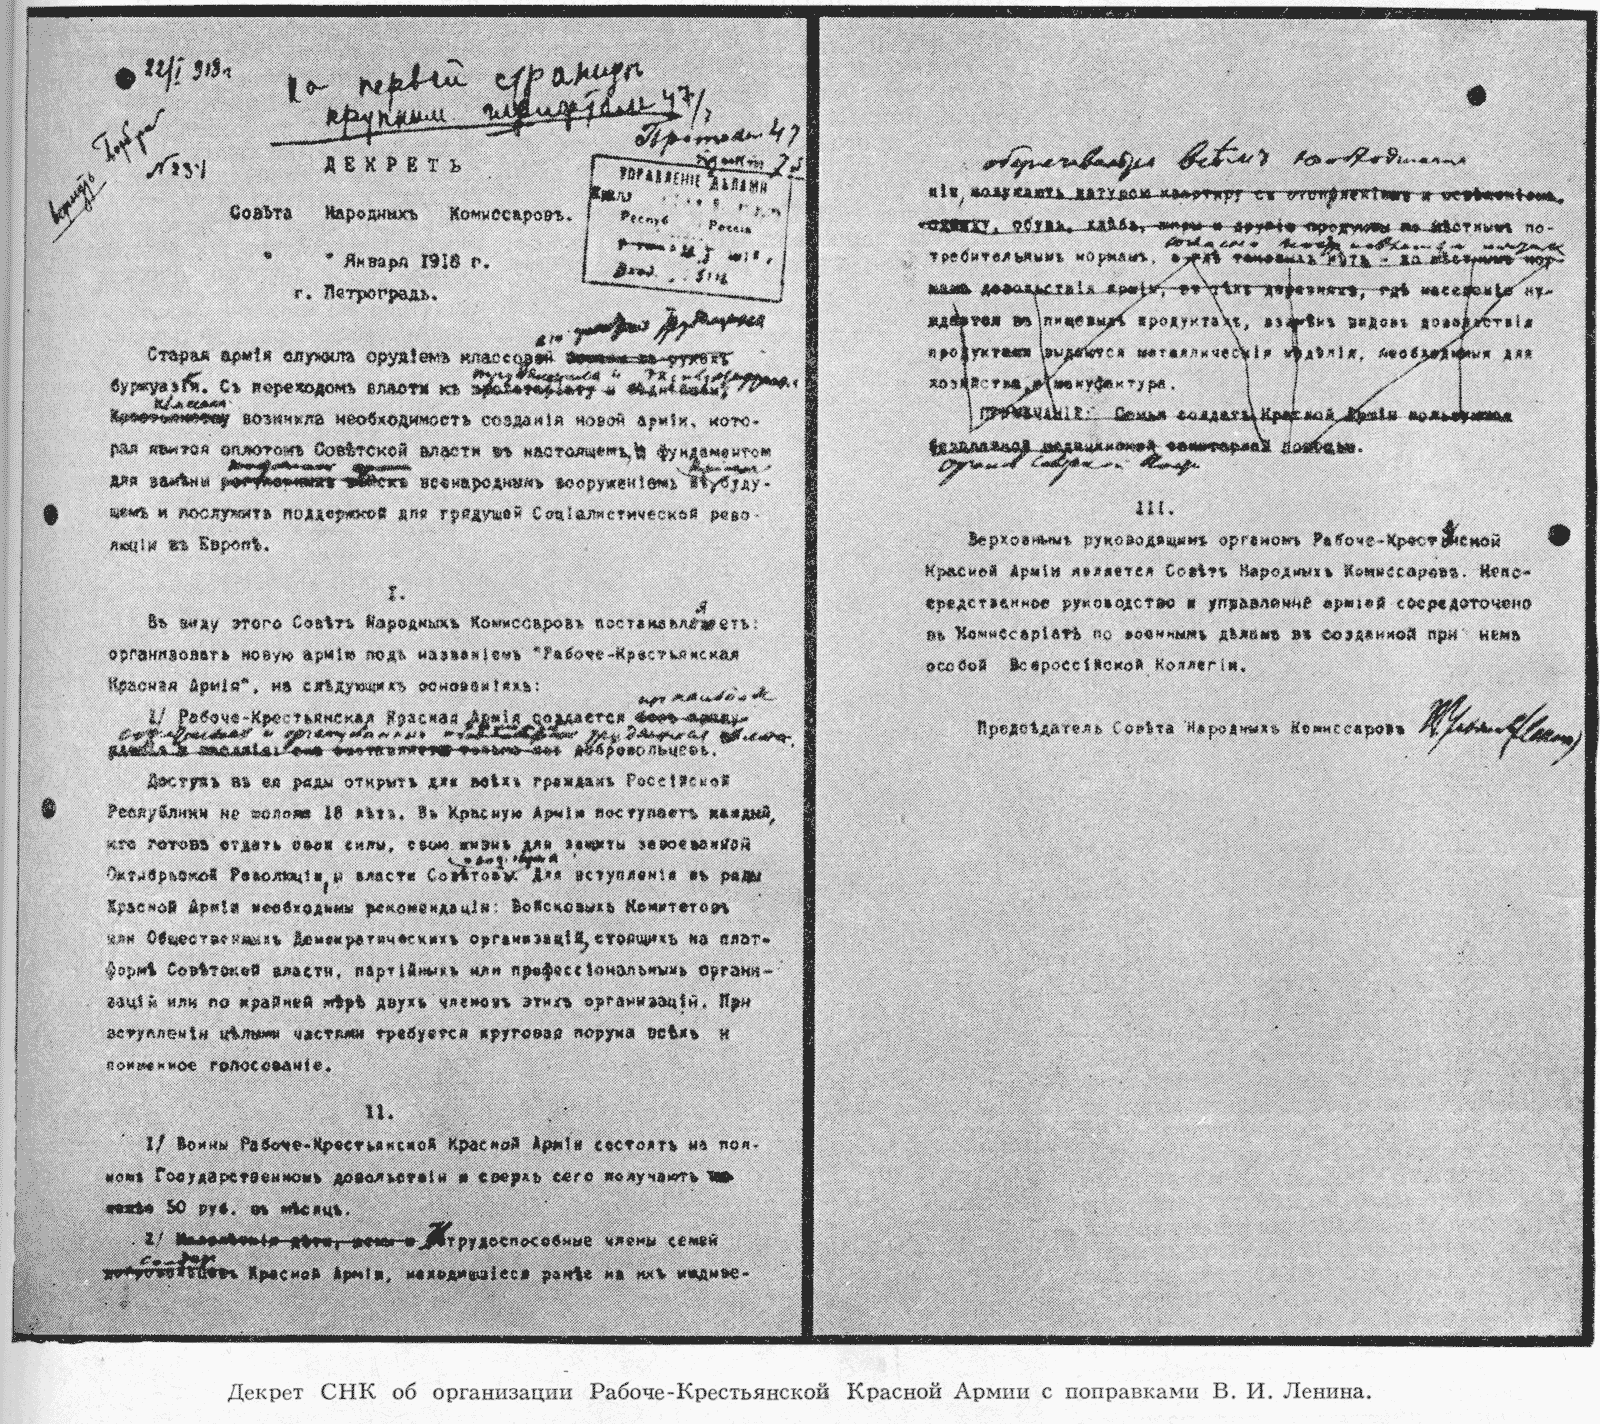 22/I 918 г
На первой странице
крупным шрифтом
47/7
Протокол 47
№ 234
ДЕКРЕТЪ
УПРАВЛЕНІЕ ДѢЛАМИ
Совѣта Народныхъ Комиссаровъ.
Респуб Россіи
" " Января 1918 г.
г. Петроградъ.
Старая армія служила орудіемъ классовой
буржуазіи. Съ переходомъ власти къ пролетаріату и бѣднѣйшему
классам
Крестьянству возникла необходимость созданія новой арміи, кото-
рая явится оплотомъ Совѣтской власти въ настоящемъ, и фундаментом
для замѣны войскъ всенароднымъ вооруженіемъ въ буду-
щемъ и послужитъ поддержкой для грядущей Соціалистической рево-
люціи въ Европѣ.
I.
Въ виду этого Совѣтъ Народныхъ Комиссаровъ постанавляетъ:
организовать новую армію подъ названіемъ "Рабоче-Крестьянская
Красная Армія", на слѣдующихъ основаніяхъ:
1/ Рабоче-Крестьянская Красная Армія создается безъ прину-
ждения и насилія: она составляется только изъ добровольцевъ.
Доступъ въ ея ряды открытъ для всѣхъ гражданъ Россійской
Республики не моложе 18 лѣтъ. Въ Красную Армію поступаетъ каждый,
кто готовъ отдать свои силы, свою жизнь для защиты завоеванной
Октябрьской Революціи, и власти Совѣтовъ. Для вступленія въ ряды
Красной Арміи необходимы рекомендаціи: Войсковыхъ Комитетовъ
или Общественныхъ Демократическихъ организацій, стоящихъ на плат-
формѣ Совѣтской власти, партійныхъ или профессіональныхъ органи-
зацій или по крайней мѣрѣ двухъ членовъ этихъ организацій. При
вступленіи цѣлыми частями требуется круговая порука всѣхъ и
поименное голосованіе.
II.
1/ Воины Рабоче-Крестьянской Красной Арміи состоятъ на пол-
номъ Государственномъ довольствіи и сверхъ сего получаютъ
50 руб. въ мѣсяцъ.
2/ Малолѣтнія дѣти, жены и Нетрудоспособные члены семей
солдат
добровольцевъ Красной Арміи, находившіеся ранѣе на ихъ иждиве-
обеспечиваются всѣмъ необходимым
ніи, получаютъ натурою квартиру съ отопленіемъ и освѣщеніемъ,
одежду, обувь, хлѣбъ, жиры и другіе продукты по мѣстнымъ по-
требительнымъ нормамъ, а гдѣ таковыхъ нѣтъ - по мѣстнымъ нор-
мамъ довольствія арміи, въ тѣхъ деревняхъ, гдѣ населеніе ну-
ждается въ пищевыхъ продуктахъ, взамѣнъ видовъ довольствія
продуктами выдаются металлическія издѣлія, необходимыя для
хозяйства, и мануфактура.
ПРИМѢЧАНІЕ: Семьи солдатъ Красной Арміи пользуются
безплатной медицинской санитарной помощью.
III.
Верховнымъ руководящимъ органомъ Рабоче-Крестьянской
Красной Арміи является Совѣтъ Народныхъ Комиссаровъ. Непо-
средственное руководство и управленіе арміей сосредоточено
въ Комиссаріатѣ по военнымъ дѣламъ въ созданной при немъ
особой Всероссійской Коллегіи.
Предсѣдатель Совѣта Народныхъ Комиссаровъ В. Ульянов (Ленин)
Декрет СНК об организации Рабоче-Крестьянской Красной Армии с поправками В. И. Ленина.